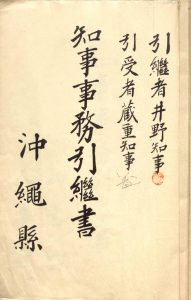 引繼者井野知事
引受者藏重知事
知事事務引繼書
沖繩縣